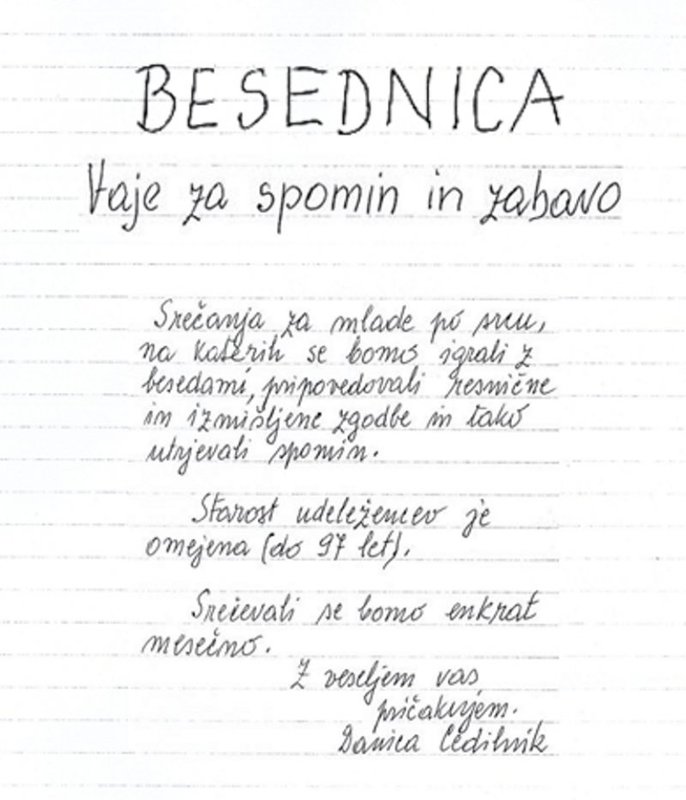 BESEDNICA
Vaje za spomin in zabavo
Srečanja za mlade po srcu,
na katerih se bomo igrali z
besedami, pripovedovali resnične
in izmišljene zgodbe in tako
utrjevali spomin.
Starost udeležencev je
omejena (do 97 let).
Srečevali se bomo enkrat
mesečno.
Z veseljem vas
pričakujem.
Danica Cedilnik